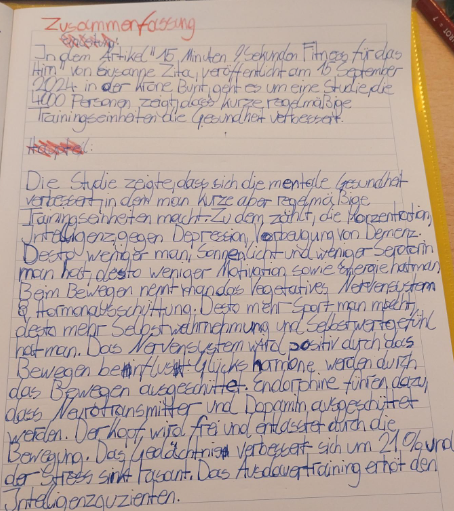 Zusammenfassung
In dem Artikel "15 Minuten 9 Sekunden Fitness für das
Hirn" von Susanne Zita, veröffentlicht am 15 September
2024 in der Krone Bunt, geht es um eine Studie, die
4000 Personen zeigt, dass kurze, regelmäßige
Trainingseinheiten die Gesundheit verbessert.
Die Studie zeigte, dass sich die mentelle Gesundheit
verbessert, in dem man kurze aber regelmäßige
Trainingseinheiten macht. Zu dem zählt, die Konzentration,
Intelligenz, gegen Depression, Vorbeugung von Demenz.
Desto weniger man, Sonnenlicht und weniger Serotonin
man hat, desto weniger Motivation, sowie Energie hat man.
Beim Bewegen nennt man das vegetatives Nervensystem
& Hormonausschüttung. Desto mehr Sport man macht,
desto mehr Selbstwahrnehmung und Selbstwertgefühl
hat man. Das Nervensystem wird positiv durch das
Bewegen Glücks hormone werden durch
das Bewegen ausgeschüttet. Endorphine führen dazu,
dass Neurotransmitter und Dopamin ausgeschüttet
werden. Der Kopf wird frei und entlastet durch die
Bewegung. Das Gedächtnis verbessert sich um 21% und
der Stress sinkt Das Ausdauertraining erhöt den
Intelligenzquzienten.